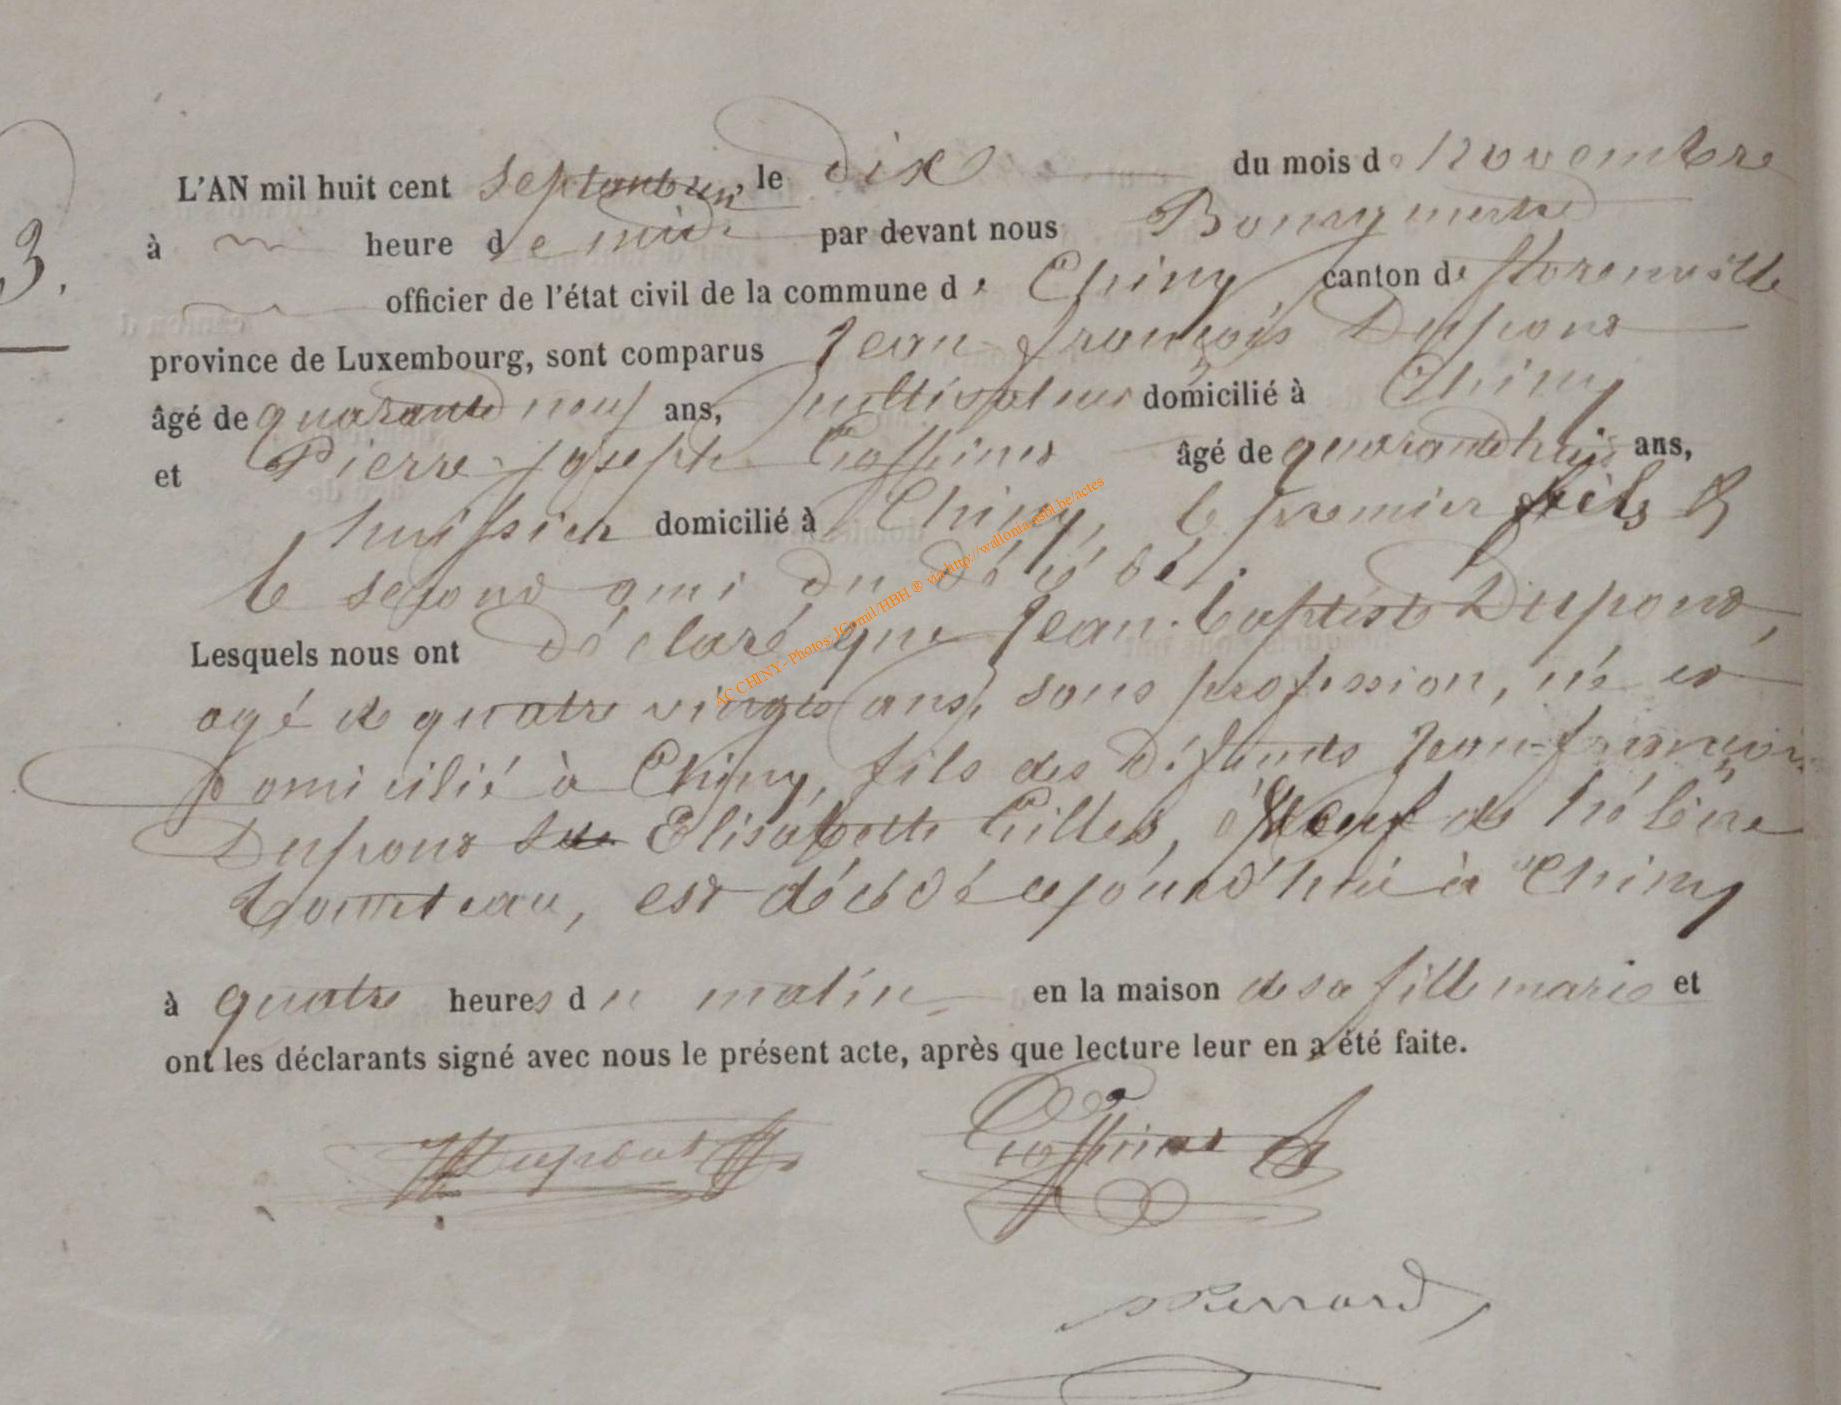 3.
L'AN mil huit cent septante un, le dix du mois de Novembre
à heure de midi par devant nous Bourgmestre
officier de l'état civil de la commune de Chiny, canton de florenville
province de Luxembourg, sont comparus Jean-françois Dupond
âgé de quarante neuf ans, cultivateur domicilié à Chiny
et Pierre-Joseph âgé de quarante huit ans,
huissier domicilié à Chiny, le premier fils &
le second ami du décédé.
Lesquels nous ont déclaré que Jean-baptiste Dupond,
agé de quatre vingts ans, sans profession, né et
domicilié à Chiny, fils des défunts Jean-françois
Dupond Elisabeth Gilles, veuf de hélène
est décédé cejourd'hui à Chiny
à quatre heures du matin en la maison de sa fille marie et
ont les déclarants signé avec nous le présent acte, après que lecture leur en a été faite.
Dupond
AC CHINY - Photos: JComil/HBH ® via http://wallonia-asbl.be/actes